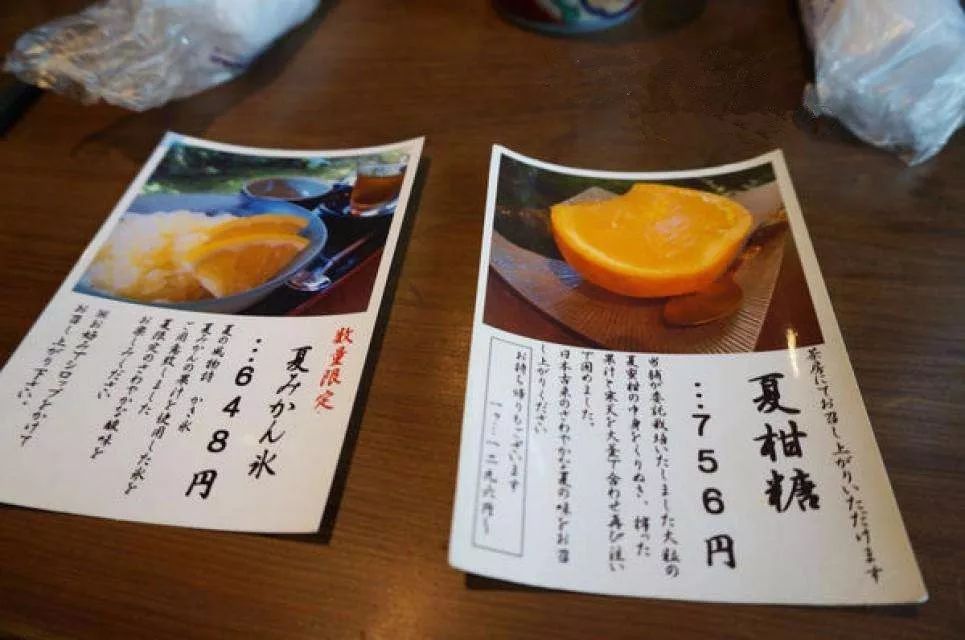 数量限定
夏みかん氷
…648円
夏の風物詩 かき氷
夏みかんの果汁を使用した氷を
ご用意致しました。
夏限定のさわやかな酸味を
お楽しみください
※お好みでシロップをかけて
お召し上がり下さい。
茶房にてお召し上がりいただけます
夏柑糖
…756円
当舗が委託栽培いたしました大粒の
夏蜜柑の中身をくりぬき、搾った
果汁と寒天を大釜で合わせ再び注い
で固めました。
日本古来のさわやかな夏の味をお召
し上がりください。
お持ち帰りもございます